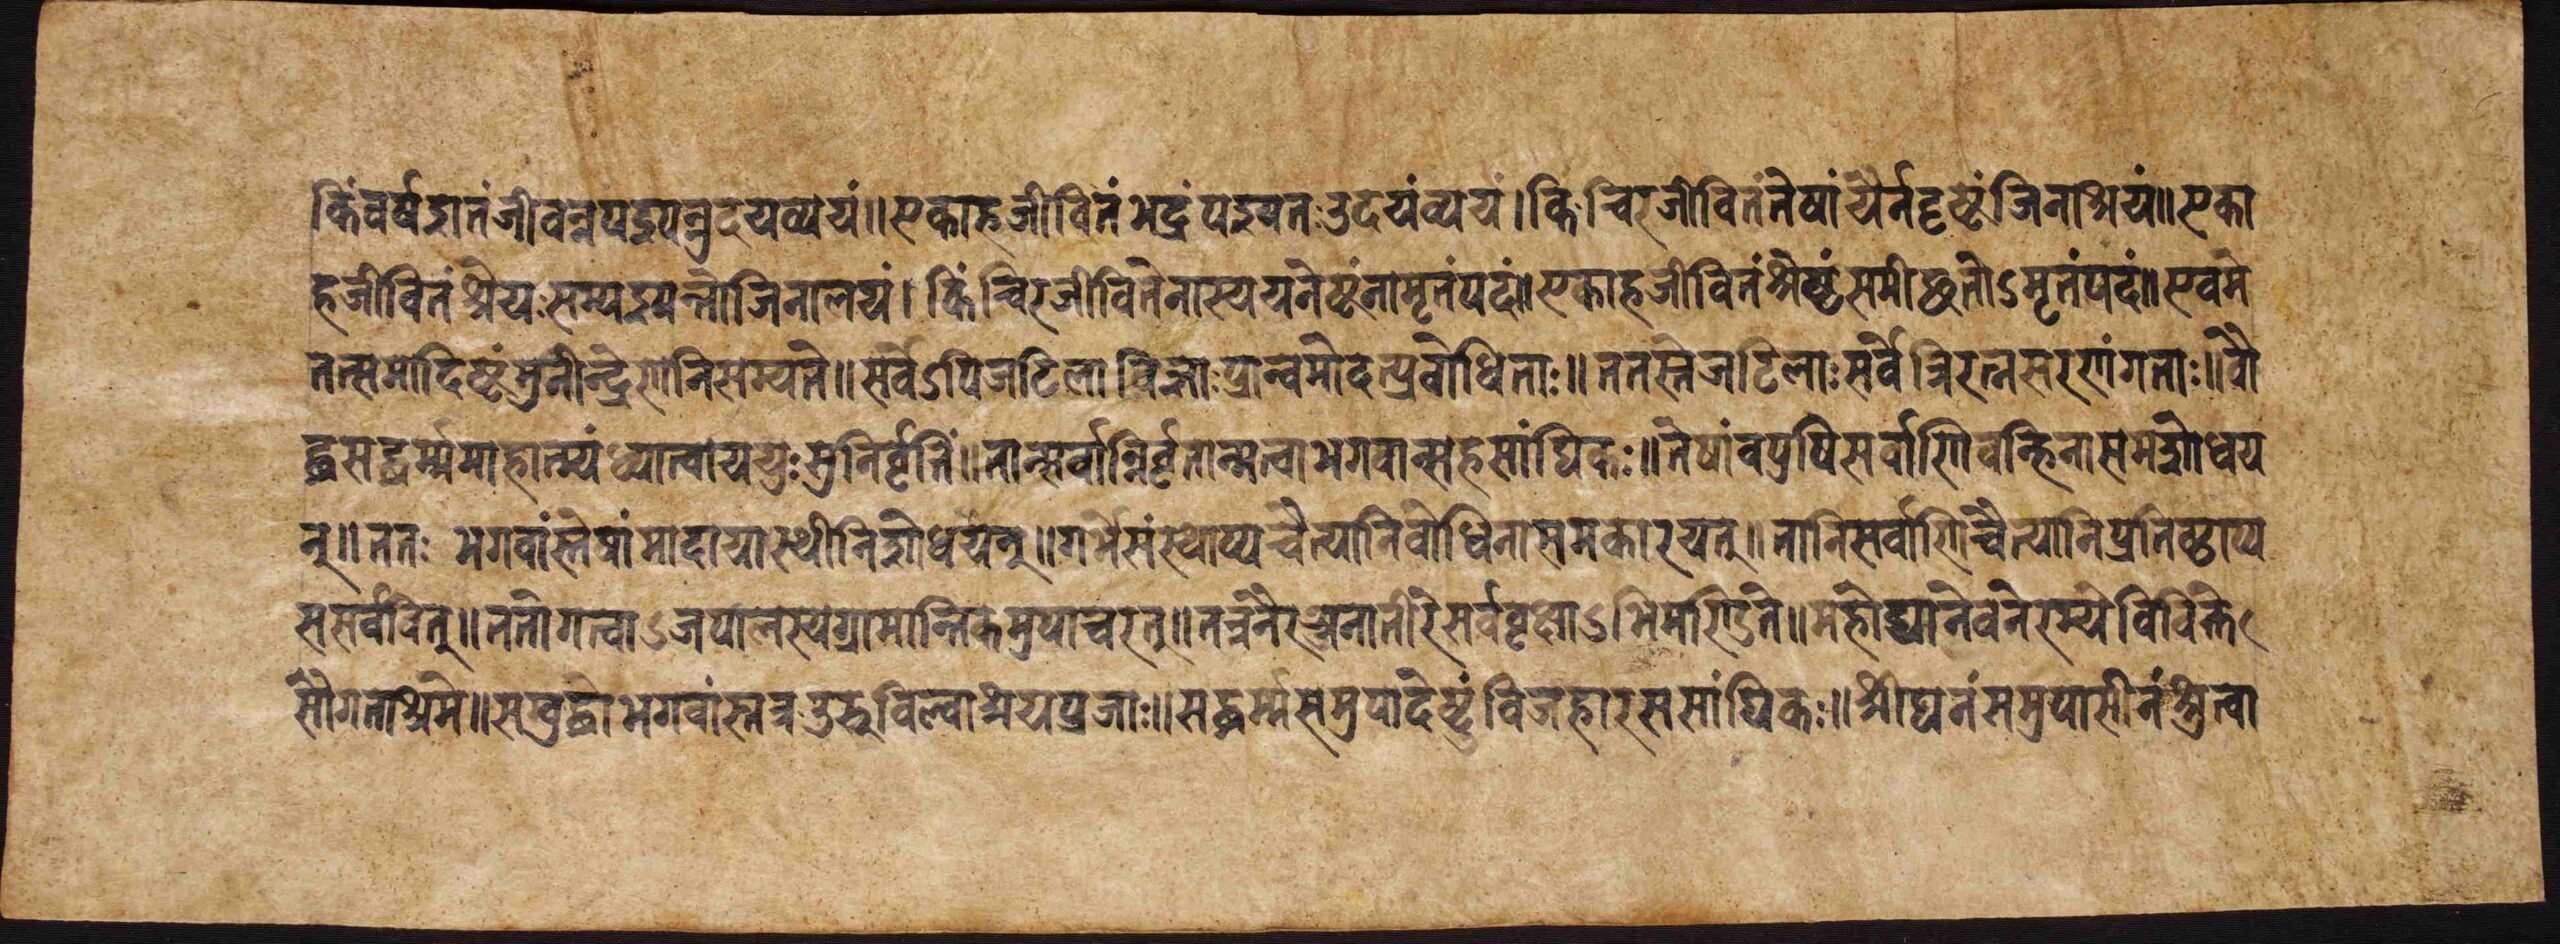 किंवर्षशतंजीवन्नपश्यन्नुदयव्ययं॥एकाहजीवितंभद्रंपश्यतउदयंव्ययं।किंचिरजीवितंतेषांयैर्नदृष्टंजिनाश्रयं॥एका
हजीवितंश्रेयःसम्पश्यन्तोजिनालयं।किंचिरजीवितेनास्ययनेष्टंनामृतंपदं॥एकाहजीवितंश्रेष्ठंसमीछतोऽमृतंपदं॥एवमे
तत्समादिष्टंमुनीन्द्रेणनिसम्यते॥सर्वेऽपिजटिलाविज्ञाःप्रान्वमोदत्प्रबोधिताः॥ततस्तेजटिलाःसर्वेत्रिरत्नसरणंगताः॥बौ
द्धसद्धर्म्ममाहात्म्यंध्यात्वाययुःसुनिर्वृतिं॥तान्सर्वान्निर्वृतान्मत्वाभगवान्सहसांघिकः॥तेषांवपुषिसर्वाणिवन्हिनासमशोधय
त्॥ततःभगवांस्तेषांमादायास्थीनिशोधयत्॥गर्भेसंस्थाप्यचैत्यानिबोधिनासमकारयत्॥तानिसर्वाणिचैत्यानिप्रतिष्ठाप्य
ससर्ववित्॥ततोगत्वाऽजपालस्यग्रामान्तिकमुपाचरत्॥तत्रनैरञ्जनातीरेसर्ववृक्षाऽभिमण्डिते॥महोद्यानेवनेरम्येविविक्ते
सौगताश्रमे॥सबुद्धोभगवांस्तत्रउरुविल्वाश्रयप्रजाः॥सद्धर्म्मसमुपादेष्टुंविजहारससांघिकः॥श्रीघनंसमुपासीनंश्रुत्वा